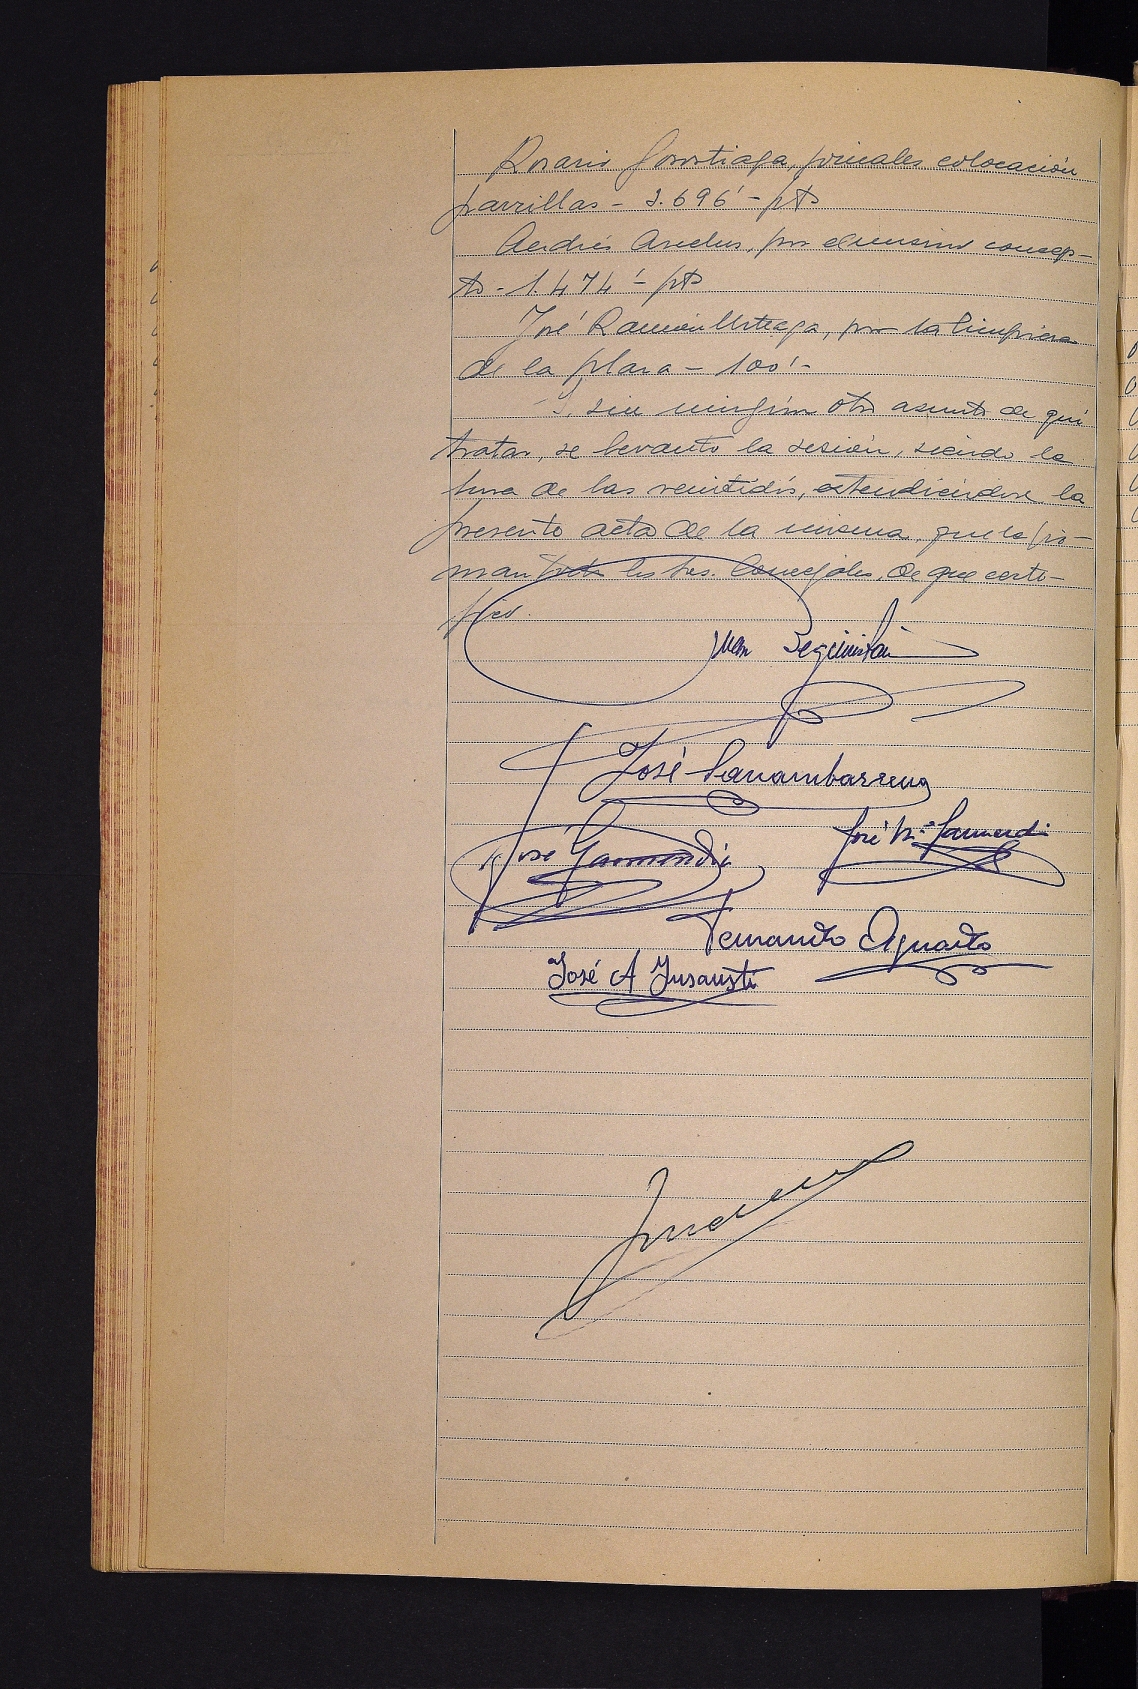 Rosario Gorostiaga, jornales colocación
parrillas - 3.696'- pts
Andrés Aseclus, por el mismo concep-
to - 1.474'- pts
José Ramón Urteaga, por la limpieza
de la plaza - 100'-
Y, sin ningún otro asunto de que
tratar, se levantó la sesión, siendo la
hora de las veintidós, extendiéndose la
presente acta de la misma, que la fir-
man los Sres. Concejales, de que certi-
fico.
Juan Beguiristain
José Canambarrena
José Garmendia José Mª Garmendi
Fernando Aguado
José A Insausti